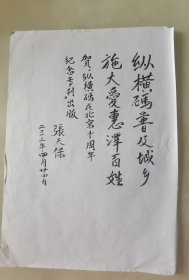 纵横码普及城乡
施大爱惠泽百姓
贺纵横码在北京十周年
纪念专刊出版
張天保
年四月廿四日